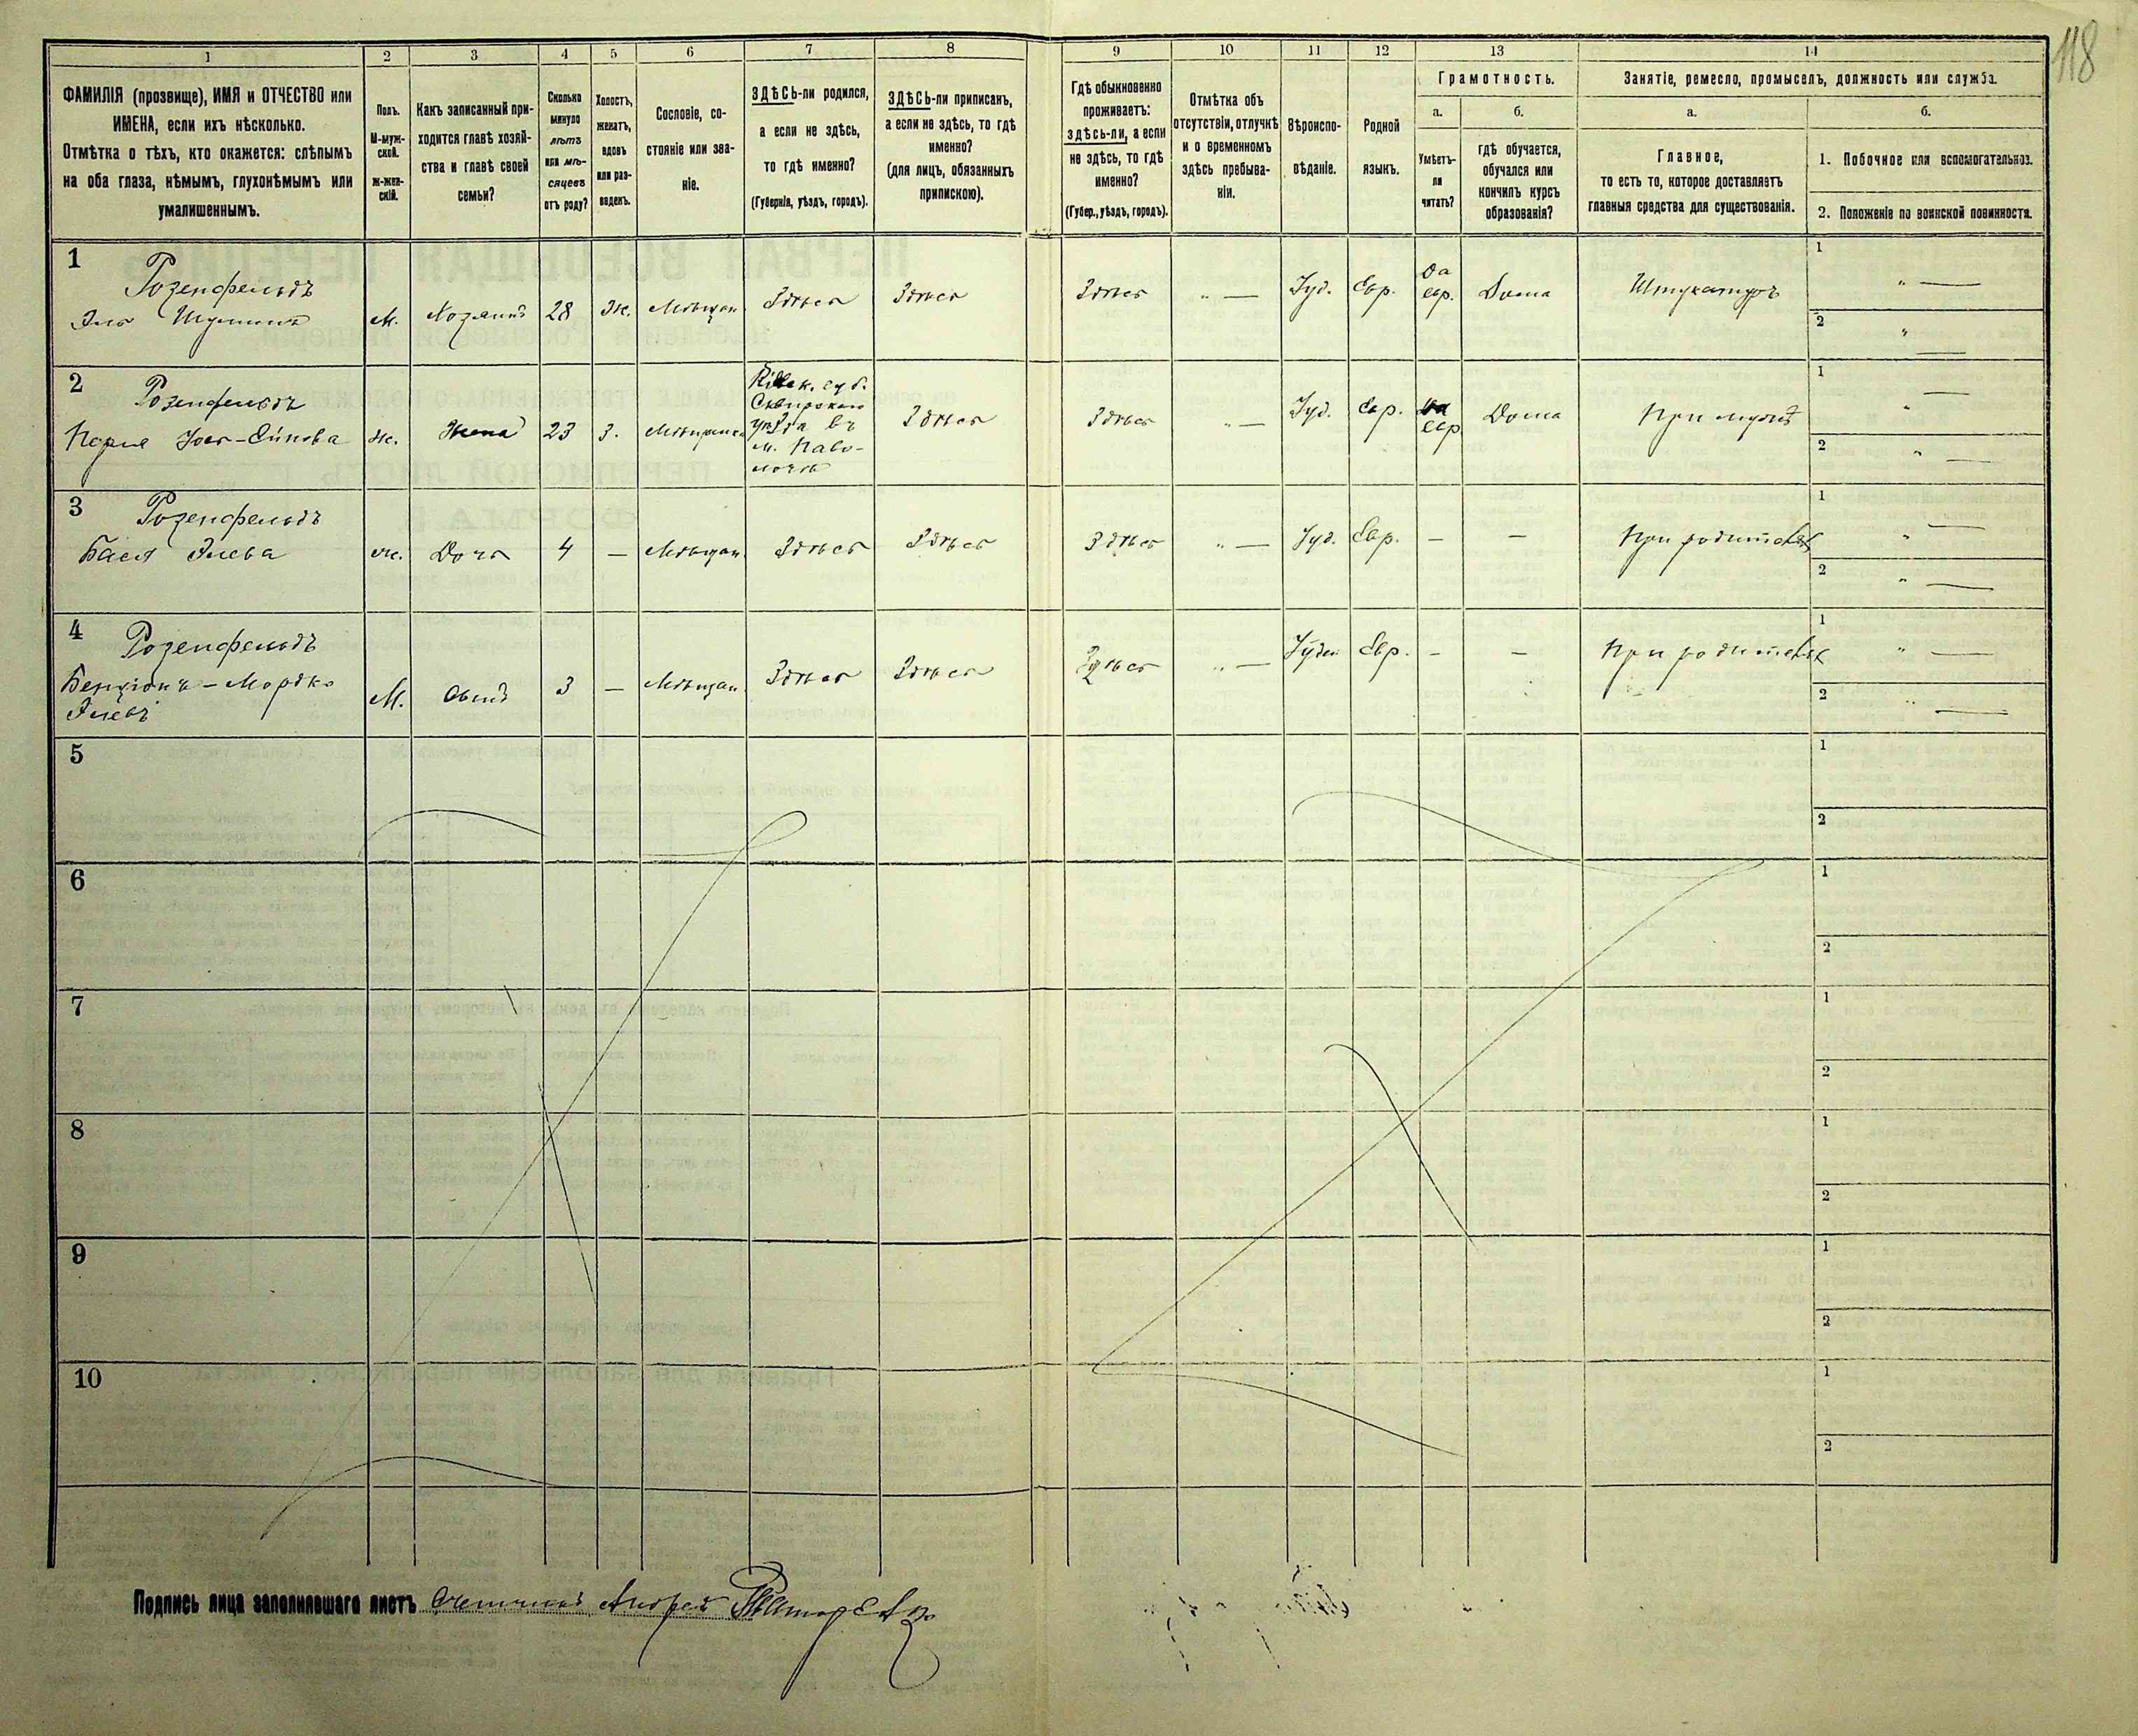 118
1 2 3 4 5 6 7 8 9 10 11 12 13 14
ФАМИЛІЯ (прозвище), ИМЯ и ОТЧЕСТВО или
ИМЕНА, если ихъ нѣсколько.
Отмѣтка о тѣхъ, кто окажется: слѣпымъ
на оба глаза, нѣмымъ, глухонѣмымъ или
умалишеннымъ.
Полъ.
М-муж-
ской.
Ж-жен-
скій.
Какъ записанный при-
ходится главѣ хозяй-
ства и главѣ своей
семьи?
Сколько
минуло
лѣтъ
или мѣ-
сяцевъ
отъ роду?
Холостъ,
женатъ,
вдовъ
или раз-
веденъ.
Сословіе, со-
стояніе или зва-
ніе.
ЗДѢСЬ-ли родился,
а если не здѣсь,
то гдѣ именно?
(Губернія, уѣздъ, городъ).
ЗДѢСЬ-ли приписанъ,
а если не здѣсь, то гдѣ
именно?
(для лицъ, обязанныхъ
припискою).
Гдѣ обыкновенно
проживаетъ:
здѣсь-ли, а если
не здѣсь, то гдѣ
именно?
(Губер., уѣздъ, городъ).
Отмѣтка объ
отсутствіи, отлучкѣ
и о временномъ
здѣсь пребыва-
ніи.
Вѣроиспо-
вѣданіе.
Родной
языкъ.
Грамотность.
а.
Умѣетъ-
ли
читать?
б.
гдѣ обучается,
обучался или
кончилъ курсъ
образованія?
Занятіе, ремесло, промыселъ, должность или служба.
а.
Главное,
то есть то, которое доставляетъ
главныя средства для существованія.
б.
1. Побочное или вспомогательное.
2. Положеніе по воинской повинности.
1
Розенфельдъ
М. Хозяинъ 28 Ж. Мѣщан. Здѣсь Здѣсь Здѣсь " — Іуд. Евр. Да
евр. Дома Штукатуръ
1 " —
2 " —
2
Розенфельдъ
Ж. Жена 23 З.
Сквирскаго
уѣзда въ
м. Паво-
лочь
Здѣсь Здѣсь " — Іуд. Евр. Да
евр. Дома При мужѣ
1 " —
2 " —
3
Розенфельдъ
Бася Элева ж. Дочь 4 — Мѣщан. Здѣсь Здѣсь Здѣсь " — Іуд. Евр. — — При родителяхъ
1 " —
2 " —
4
Розенфельдъ
Бенціонъ-Мордко
Элевъ
М. Сынъ 3 — Мѣщан. Здѣсь Здѣсь Здѣсь " — Іудей Евр. — — При родителяхъ
1 " —
2 " —
5 1
2
6 1
2
7 1
2
8 1
2
9 1
2
10 1
2
Подпись лица заполнившаго листъ Счетчикъ Андрей